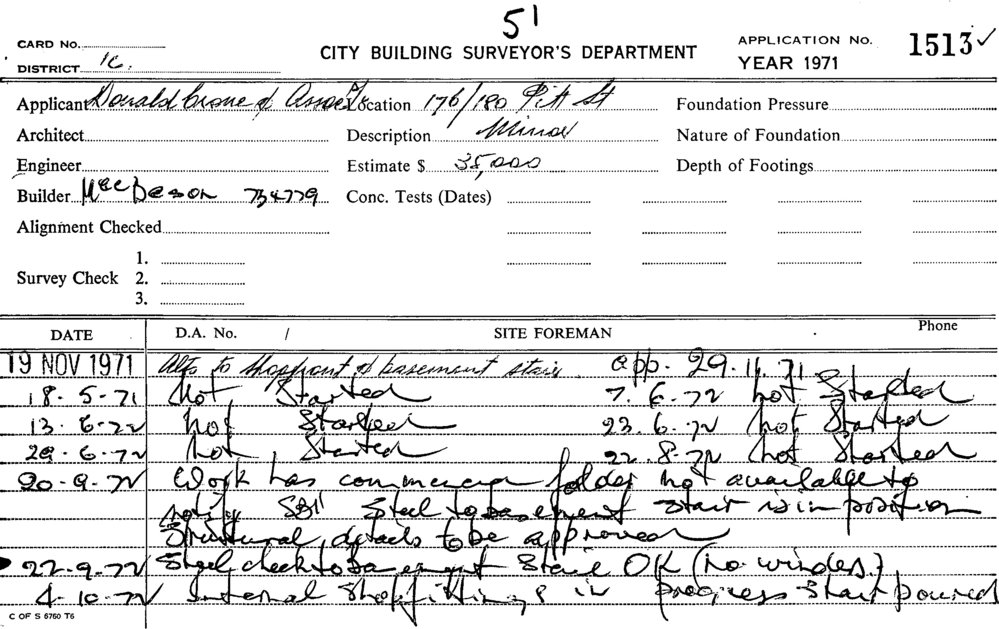 51
CARD No.
CITY BUILDING SURVEYOR'S DEPARTMENT
APPLICATION No. 1513 ✓
DISTRICT 1C.
YEAR 1971
Applicant Donald Crone & Assoc Location 176/180 Pitt St Foundation Pressure
Architect Description Minor Nature of Foundation
Engineer Estimate $ 35,000 Depth of Footings
Builder 734779 Conc. Tests (Dates)
Alignment Checked
1.
Survey Check 2.
3.
DATE D.A. No. / SITE FOREMAN Phone
19 NOV 1971 Alts to shopfront & basement stair. app. 29.11.71
18.5.71 not Started 7.6.72 not Started
13.6.72 not Started 23.6.72 not Started
29.6.72 not Started 22.8.72 not Started
20.9.72 Work has commenced folder not available to
notify Steel to basement stair is in position
Structural details to be approved
22.9.72 Steel check to basement Stair OK (no winders)
4.10.72 Internal Shopfitting is in progress Stair poured
C OF S 6760 T6